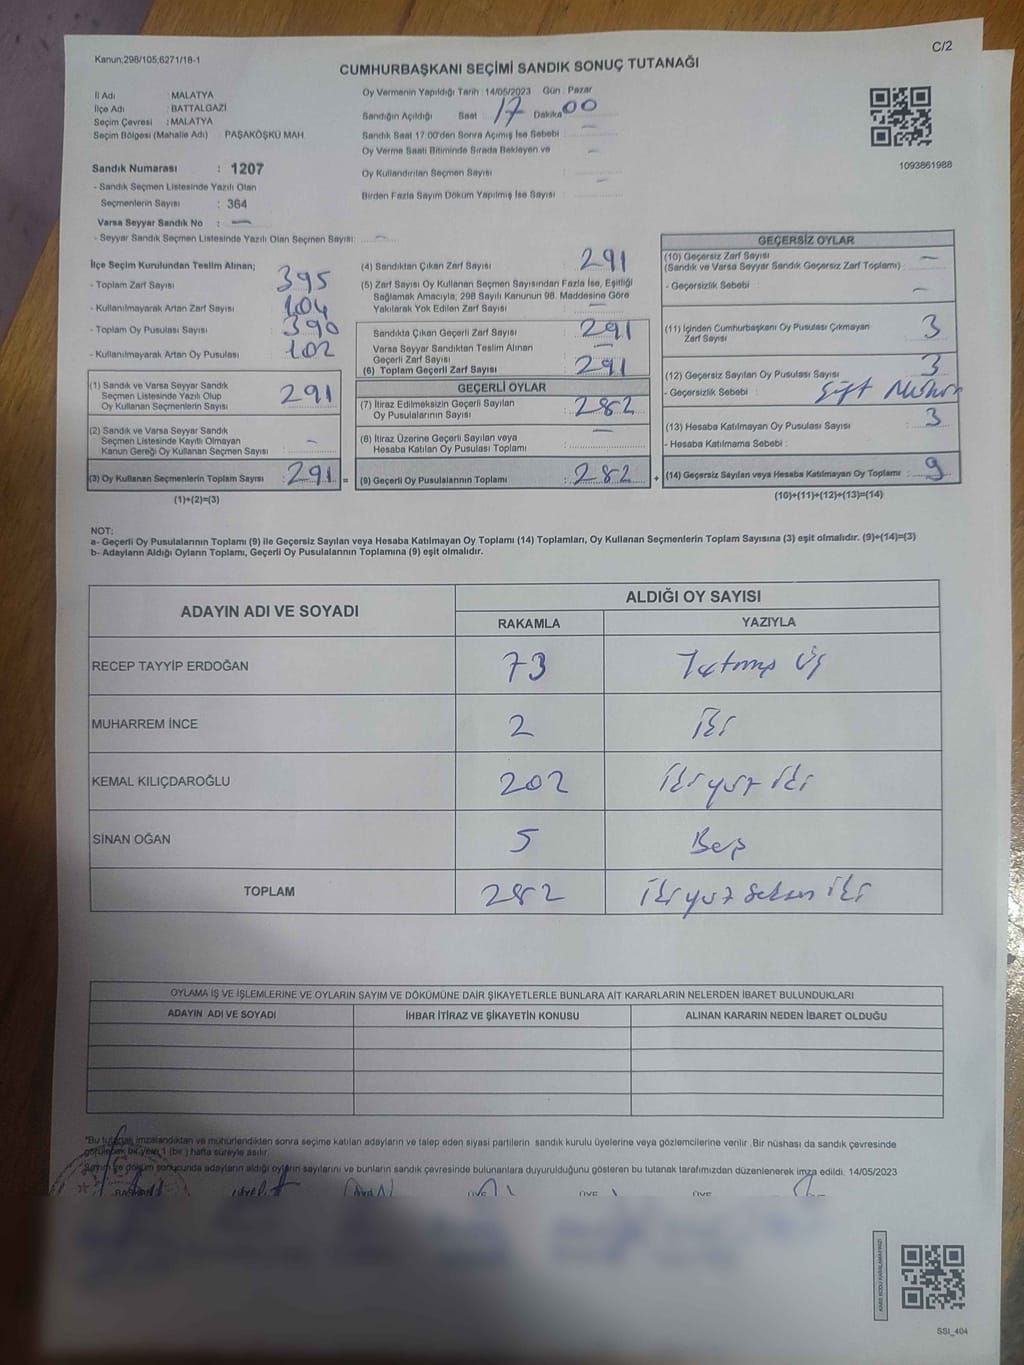 C/2
Kanun;298/105,6271/18-1
CUMHURBAŞKANI SEÇİMİ SANDIK SONUÇ TUTANAĞI
İl Adı : MALATYA
İlçe Adı : BATTALGAZİ
Seçim Çevresi : MALATYA
Seçim Bölgesi (Mahalle Adı) : PAŞAKÖŞKÜ MAH.
Sandık Numarası : 1207
- Sandık Seçmen Listesinde Yazılı Olan
Seçmenlerin Sayısı : 364
Varsa Seyyar Sandık No : —
- Seyyar Sandık Seçmen Listesinde Yazılı Olan Seçmen Sayısı: —
Oy Vermenin Yapıldığı Tarih : 14/05/2023 Gün : Pazar
Sandığın Açıldığı Saat : 17 Dakika 00
Sandık Saat 17.00'den Sonra Açımış İse Sebebi : —
Oy Verme Saati Bitiminde Sırada Bekleyen ve —
Oy Kullandırılan Seçmen Sayısı :
Birden Fazla Sayım Döküm Yapılmış İse Sayısı : —
1093861988
İlçe Seçim Kurulundan Teslim Alınan;
- Toplam Zarf Sayısı 395
- Kullanılmayarak Artan Zarf Sayısı 104
- Toplam Oy Pusulası Sayısı 390
- Kullanılmayarak Artan Oy Pusulası 102
(1) Sandık ve Varsa Seyyar Sandık
Seçmen Listesinde Yazılı Olup
Oy Kullanan Seçmenlerin Sayısı 291
(2) Sandık ve Varsa Seyyar Sandık
Seçmen Listesinde Kayıtlı Olmayan
Kanun Gereği Oy Kullanan Seçmen Sayısı : —
(3) Oy Kullanan Seçmenlerin Toplam Sayısı : 291 =
(1)+(2)=(3)
(4) Sandıktan Çıkan Zarf Sayısı 291
(5) Zarf Sayısı Oy Kullanan Seçmen Sayısından Fazla İse, Eşitliği
Sağlamak Amacıyla; 298 Sayılı Kanunun 98. Maddesine Göre
Yakılarak Yok Edilen Zarf Sayısı : —
Sandıkta Çıkan Geçerli Zarf Sayısı : 291
Varsa Seyyar Sandıktan Teslim Alınan
Geçerli Zarf Sayısı : —
(6) Toplam Geçerli Zarf Sayısı : 291
GEÇERLİ OYLAR
(7) İtiraz Edilmeksizin Geçerli Sayılan
Oy Pusulalarının Sayısı : 282
(8) İtiraz Üzerine Geçerli Sayılan veya
Hesaba Katılan Oy Pusulası Toplamı : —
(9) Geçerli Oy Pusulalarının Toplamı : 282 +
GEÇERSİZ OYLAR
(10) Geçersiz Zarf Sayısı
(Sandık ve Varsa Seyyar Sandık Geçersiz Zarf Toplamı) : —
- Geçersizlik Sebebi : —
(11) İçinden Cumhurbaşkanı Oy Pusulası Çıkmayan
Zarf Sayısı : 3
(12) Geçersiz Sayılan Oy Pusulası Sayısı : 3
- Geçersizlik Sebebi :
(13) Hesaba Katılmayan Oy Pusulası Sayısı : 3
- Hesaba Katılmama Sebebi :
(14) Geçersiz Sayılan veya Hesaba Katılmayan Oy Toplamı : 9
(10)+(11)+(12)+(13)=(14)
NOT:
a- Geçerli Oy Pusulalarının Toplamı (9) ile Geçersiz Sayılan veya Hesaba Katılmayan Oy Toplamı (14) Toplamları, Oy Kullanan Seçmenlerin Toplam Sayısına (3) eşit olmalıdır. (9)+(14)=(3)
b- Adayların Aldığı Oyların Toplamı, Geçerli Oy Pusulalarının Toplamına (9) eşit olmalıdır.
ADAYIN ADI VE SOYADI
ALDIĞI OY SAYISI
RAKAMLA YAZIYLA
RECEP TAYYİP ERDOĞAN 73 Yetmiş Üç
MUHARREM İNCE 2 İki
KEMAL KILIÇDAROĞLU 202 İkiyüz İki
SİNAN OĞAN 5 Beş
TOPLAM 282 İkiyüz Seksen İki
OYLAMA İŞ VE İŞLEMLERİNE VE OYLARIN SAYIM VE DÖKÜMÜNE DAİR ŞİKAYETLERLE BUNLARA AİT KARARLARIN NELERDEN İBARET BULUNDUKLARI
ADAYIN ADI VE SOYADI İHBAR İTİRAZ VE ŞİKAYETİN KONUSU ALINAN KARARIN NEDEN İBARET OLDUĞU
*Bu tutanak imzalandıktan ve mühürlendikten sonra seçime katılan adayların ve talep eden siyasi partilerin sandık kurulu üyelerine veya gözlemcilerine verilir .Bir nüshası da sandık çevresinde
görülecek bir yere 1 (bir ) hafta süreyle asılır.
Sayım ve döküm sonucunda adayların aldığı oyların sayılarını ve bunların sandık çevresinde bulunanlara duyurulduğunu gösteren bu tutanak tarafımızdan düzenlenerek imza edildi. 14/05/2023
SSI_404